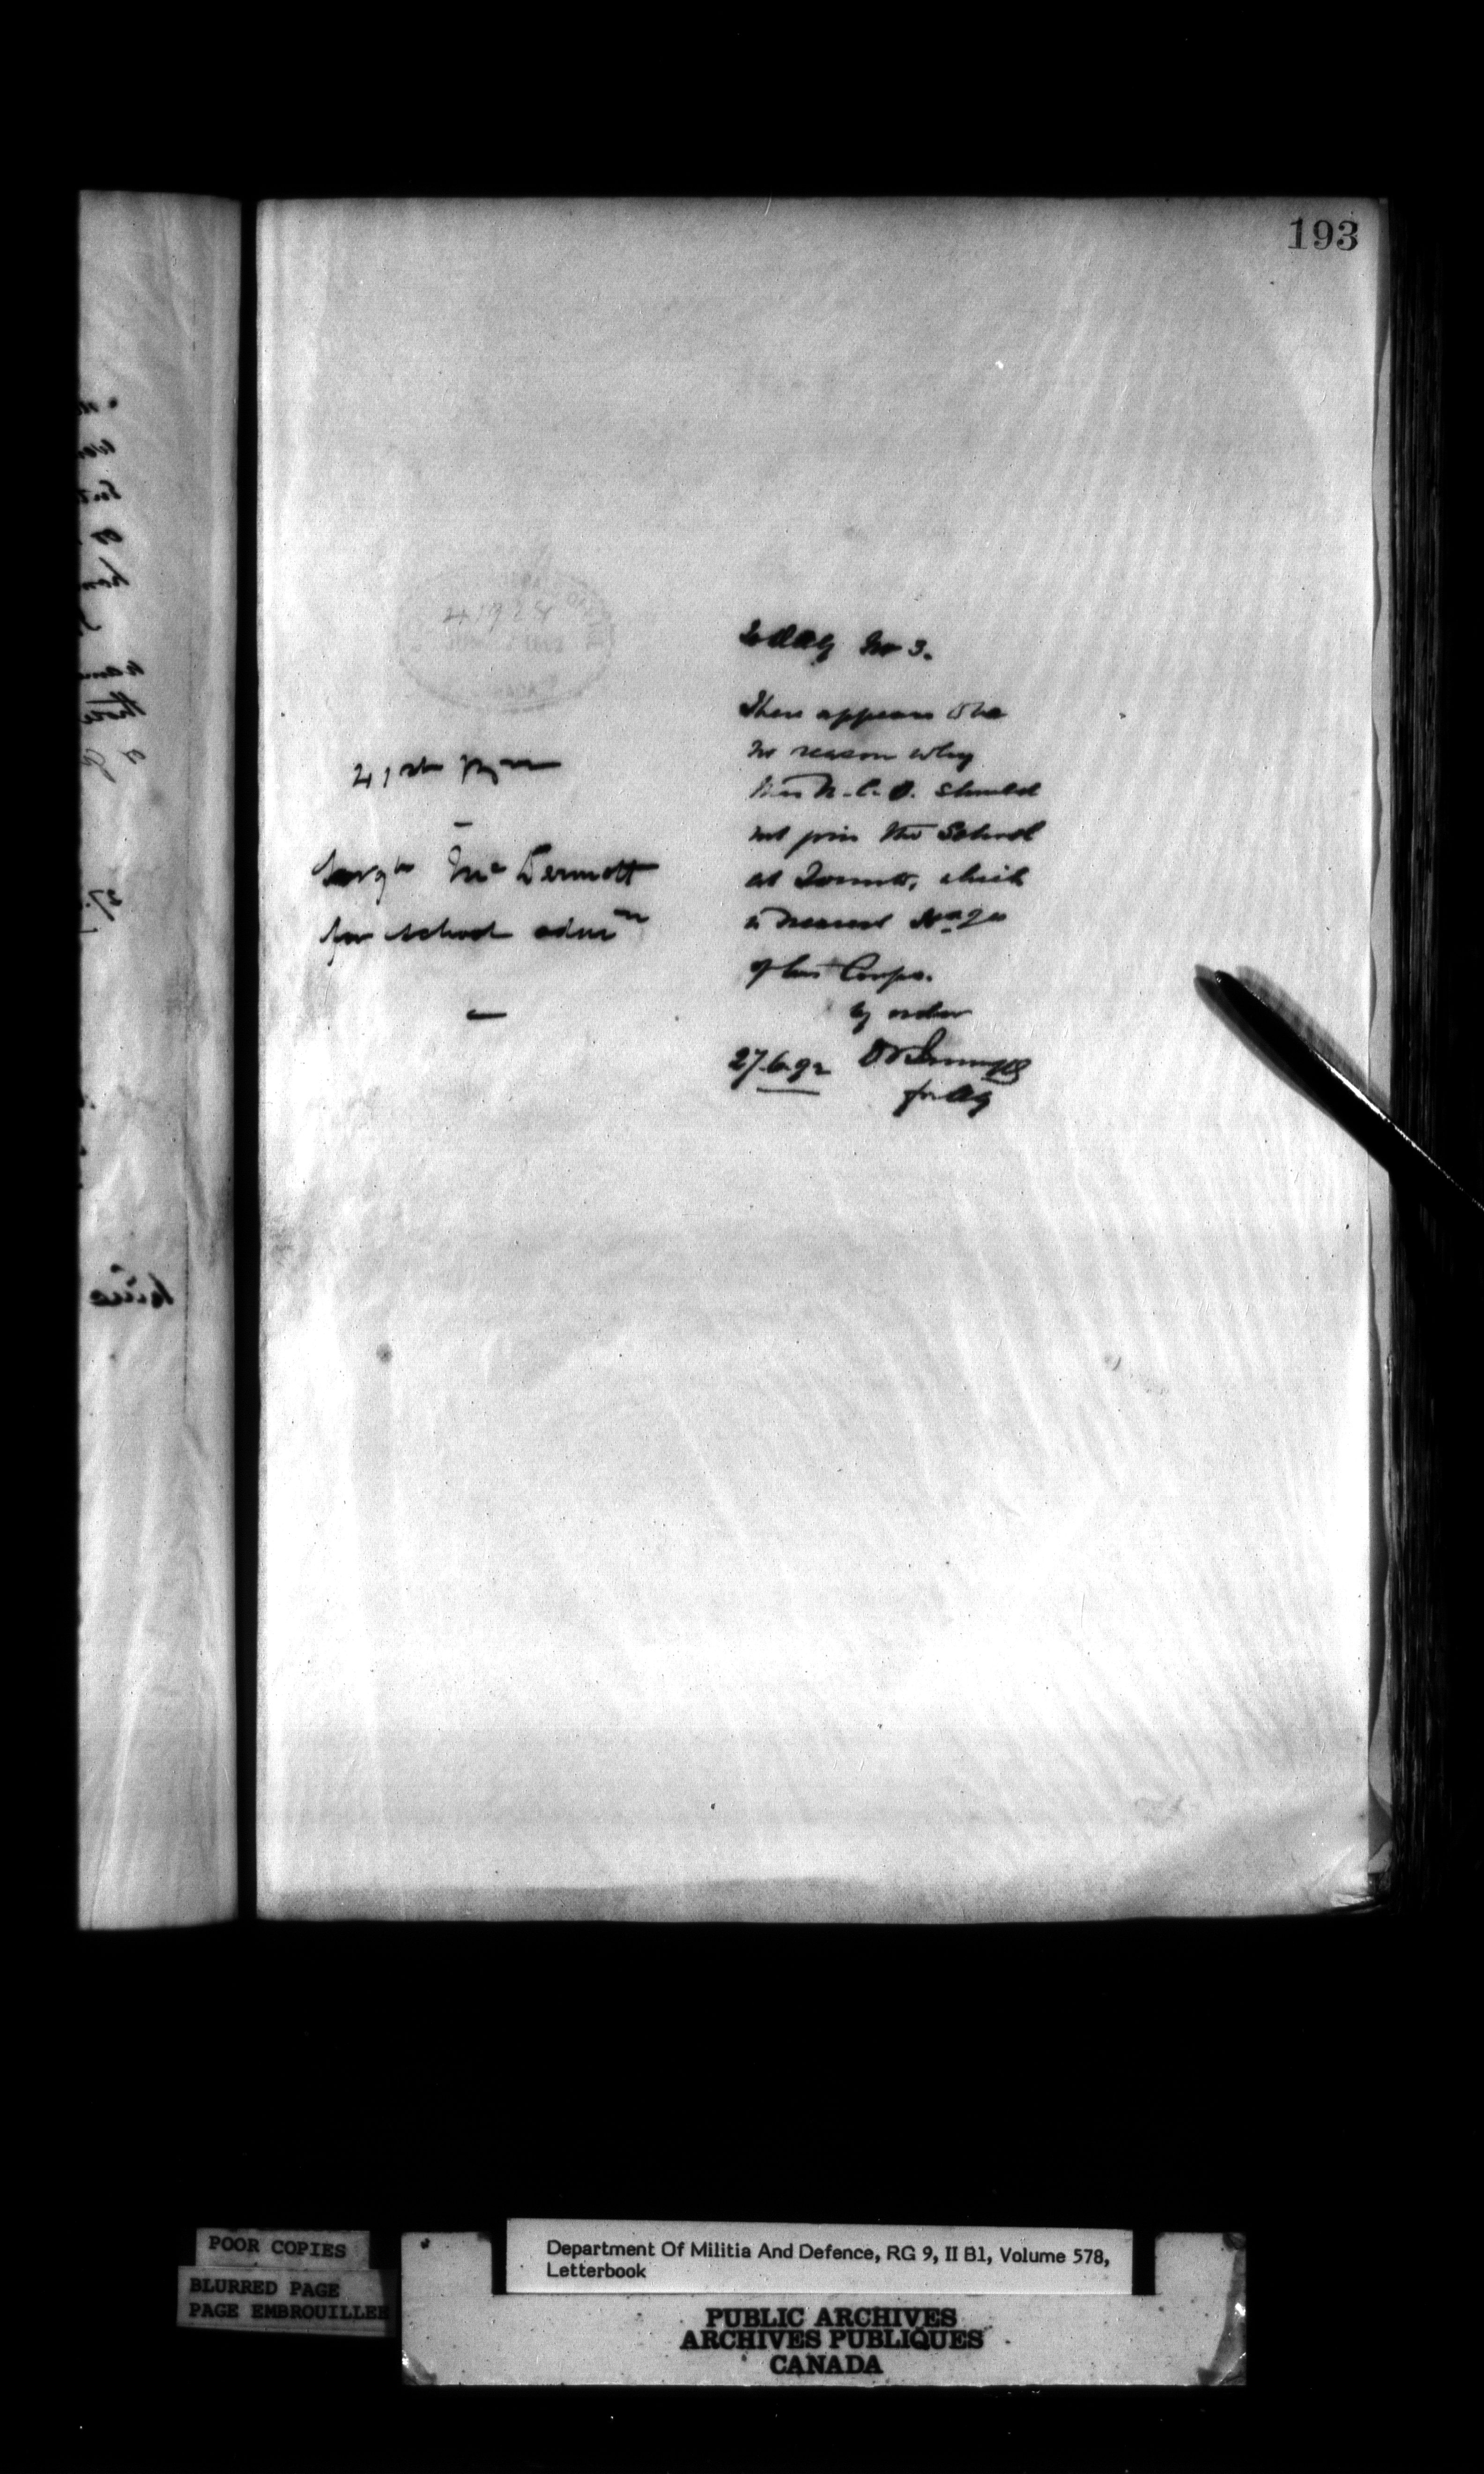 193
41924
41st
Sergt McDermott
for school admn
To DAG No 3.
There appears to be
no reason why
this N.C.O. should
not join the School
at Toronto, which
is nearest
of his Corps.
by order
27.6.92
for AG
POOR COPIES
BLURRED PAGE
PAGE EMBROUILLEE
Department Of Militia And Defence, RG 9, II B1, Volume 578,
Letterbook
PUBLIC ARCHIVES
ARCHIVES PUBLIQUES
CANADA